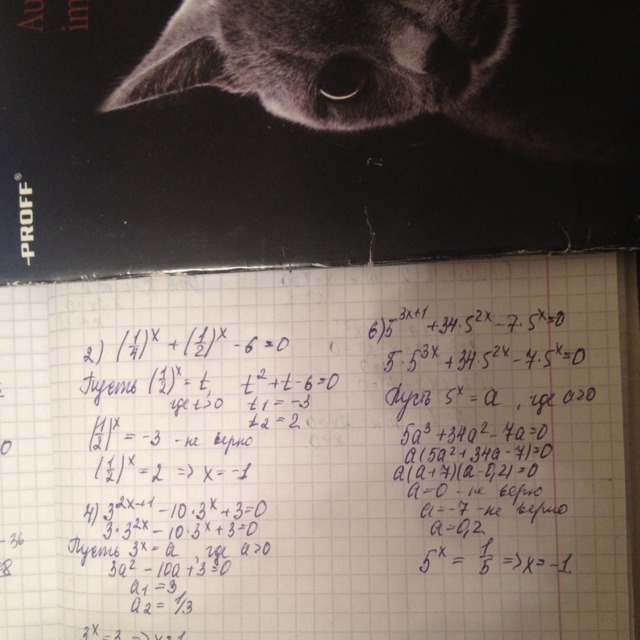 Au
im
PROFF®
2) (1/4)^x + (1/2)^x - 6 = 0
Пусть (1/2)^x = t, t^2 + t - 6 = 0
где t>0 t1 = -3
t2 = 2
(1/2)^x = -3 - не верно
(1/2)^x = 2 => x = -1
4) 3^{2x+1} - 10·3^x + 3 = 0
3·3^{2x} - 10·3^x + 3 = 0
Пусть 3^x = a где a>0
3a^2 - 10a + 3 = 0
a1 = 3
a2 = 1/3
3^x = 3 => x = 1
6) 5^{3x+1} + 34·5^{2x} - 7·5^x = 0
5·5^{3x} + 34·5^{2x} - 7·5^x = 0
Пусть 5^x = a, где a>0
5a^3 + 34a^2 - 7a = 0
a(5a^2 + 34a - 7) = 0
a(a+7)(a-0,2) = 0
a = 0 - не верно
a = -7 - не верно
a = 0,2
5^x = 1/5 => x = -1
0
-36